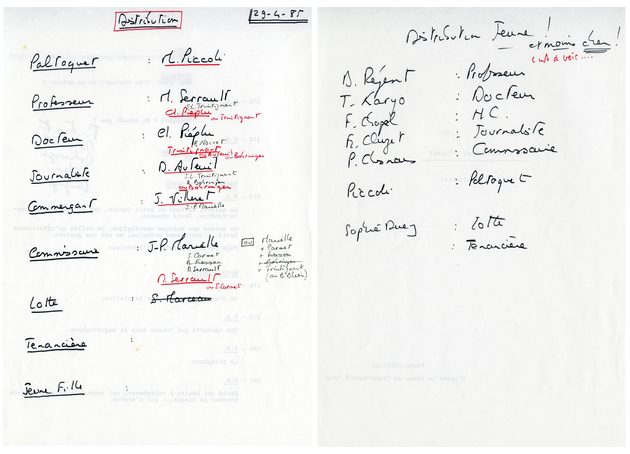 Distribution
29-4-85
Paltoquet : M. Piccoli
Professeur : M. Serrault
J.L. Trintignant
Cl. Piéplu
ou Trintignant
Docteur : Cl. Piéplu
P. Noiret
Trintignant
ou Auteuil ou Bohringer
Journaliste : D. Auteuil
J.L. Trintignant
R. Bohringer
ou Bohringer
Commerçant : J. Villeret
J.P. Marielle
Commissaire : J-P. Marielle
J. Carmet
M. Serrault
ou Marielle
+ Carmet
+ Trintignant
(ou B. Blier)
M. Serrault
ou J. Carmet
Lotte : S. Marceau
Tenancière :
Jeune Fille :
Distribution Jeune !
et moins cher !
c'est à voir....
D. Régent : Professeur
T. Karyo : Docteur
F. Chopel : H.C.
F. Cluzet : Journaliste
P. Chesnais : Commissaire
Piccoli : Paltoquet
Sophie Duez : Lotte
: Tenancière